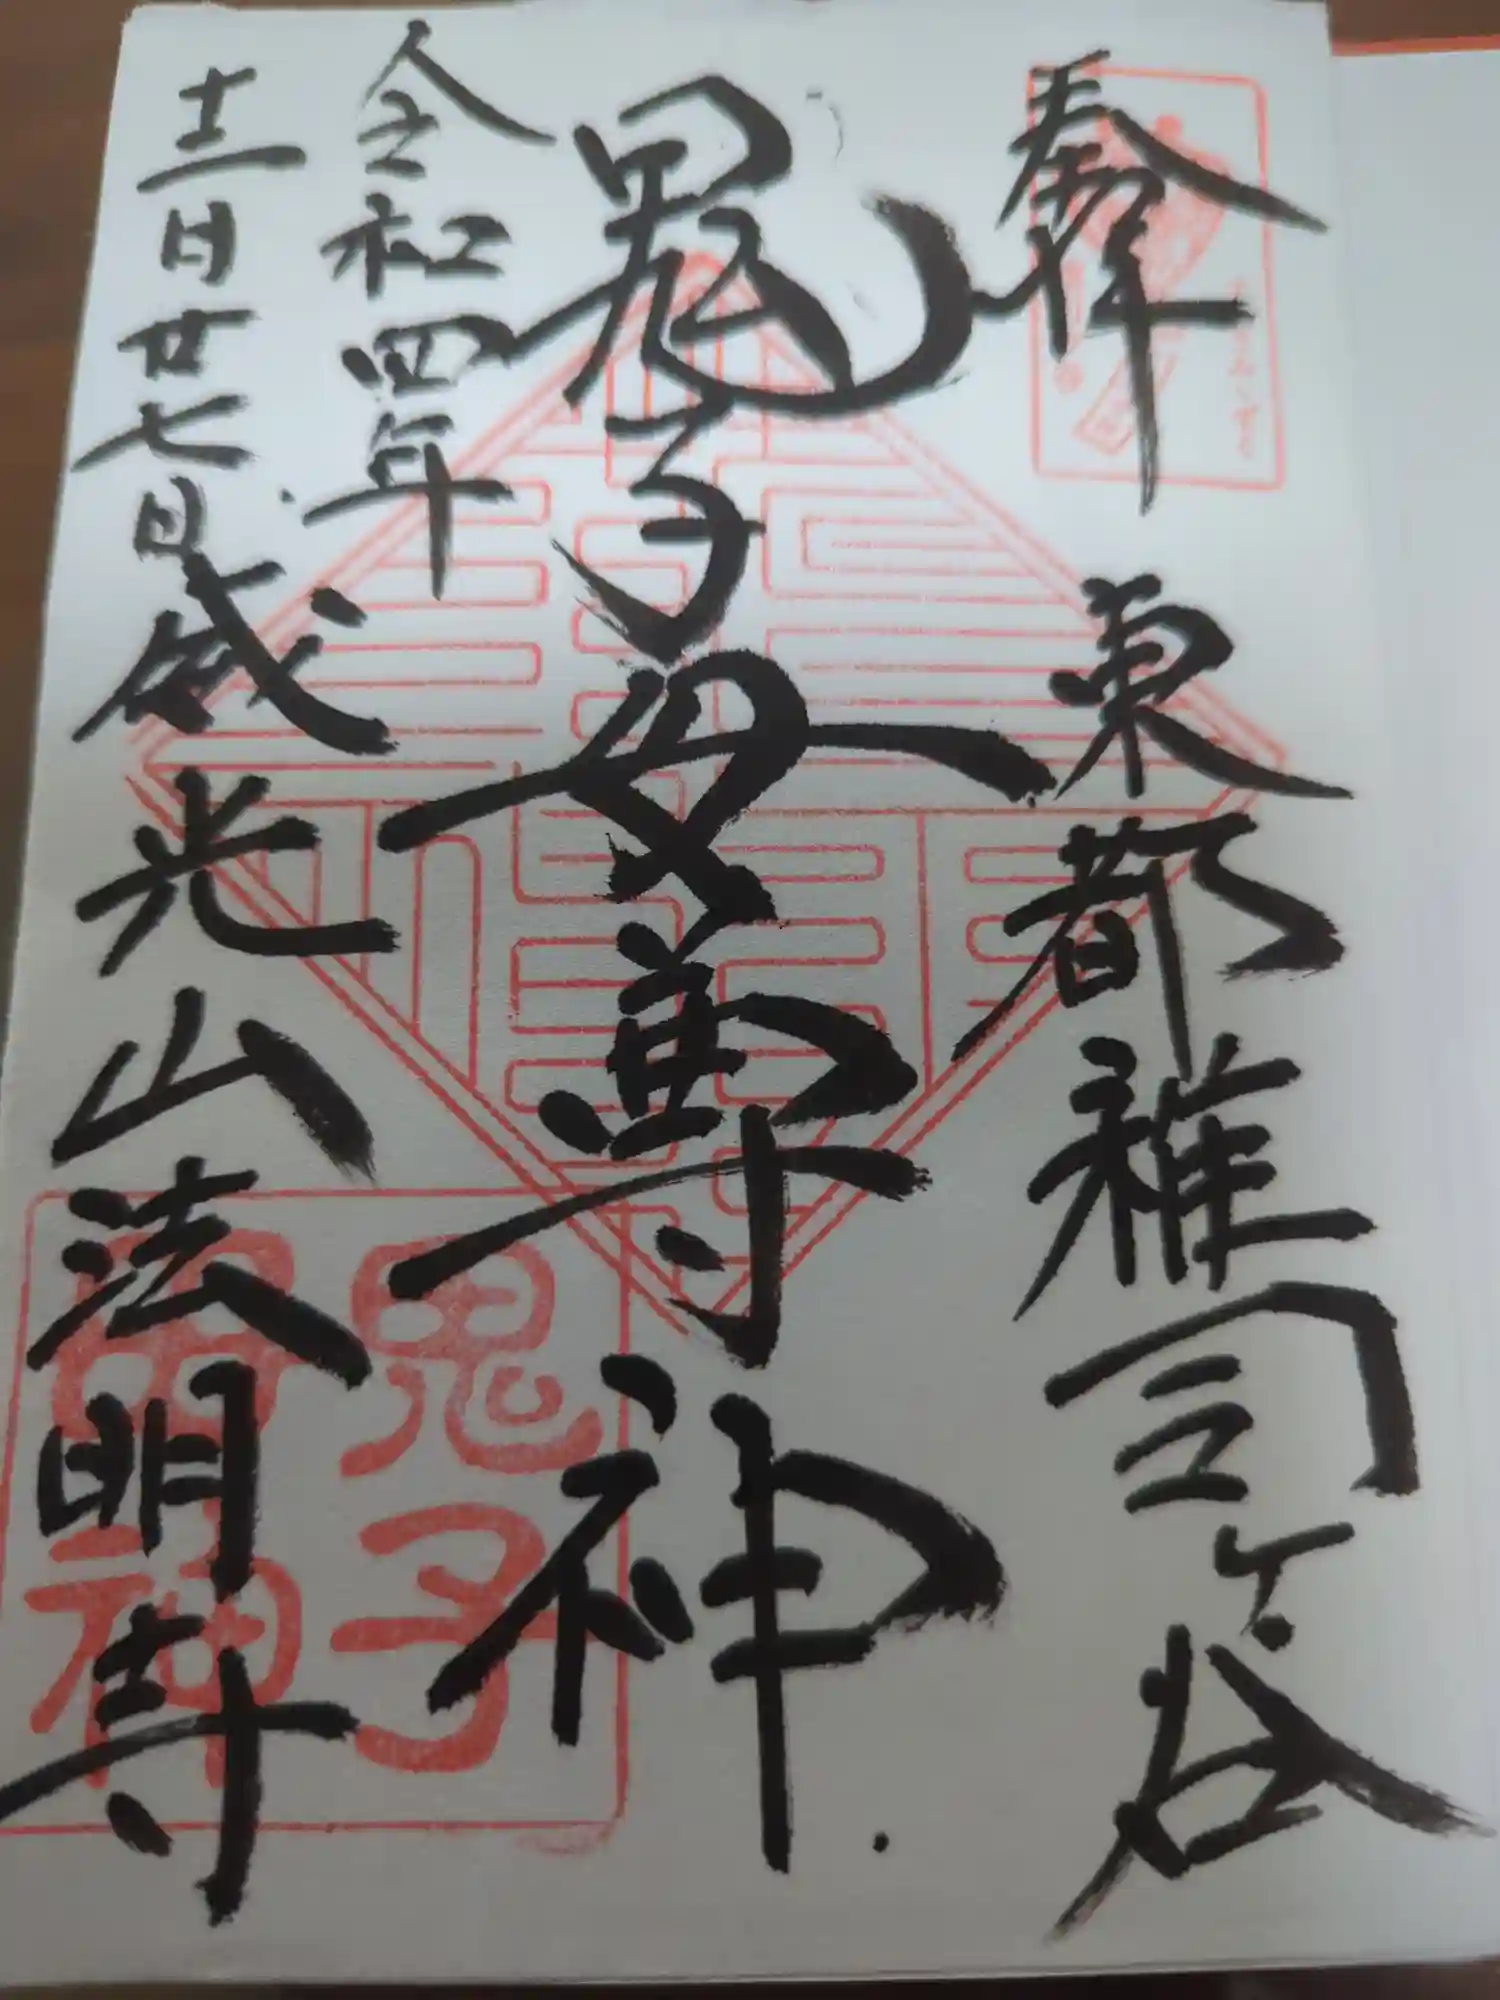 奉拝
東都雑司ヶ谷
鬼子母尊神
令和四年
十二月廿七日
威光山法明寺
鬼子
母神